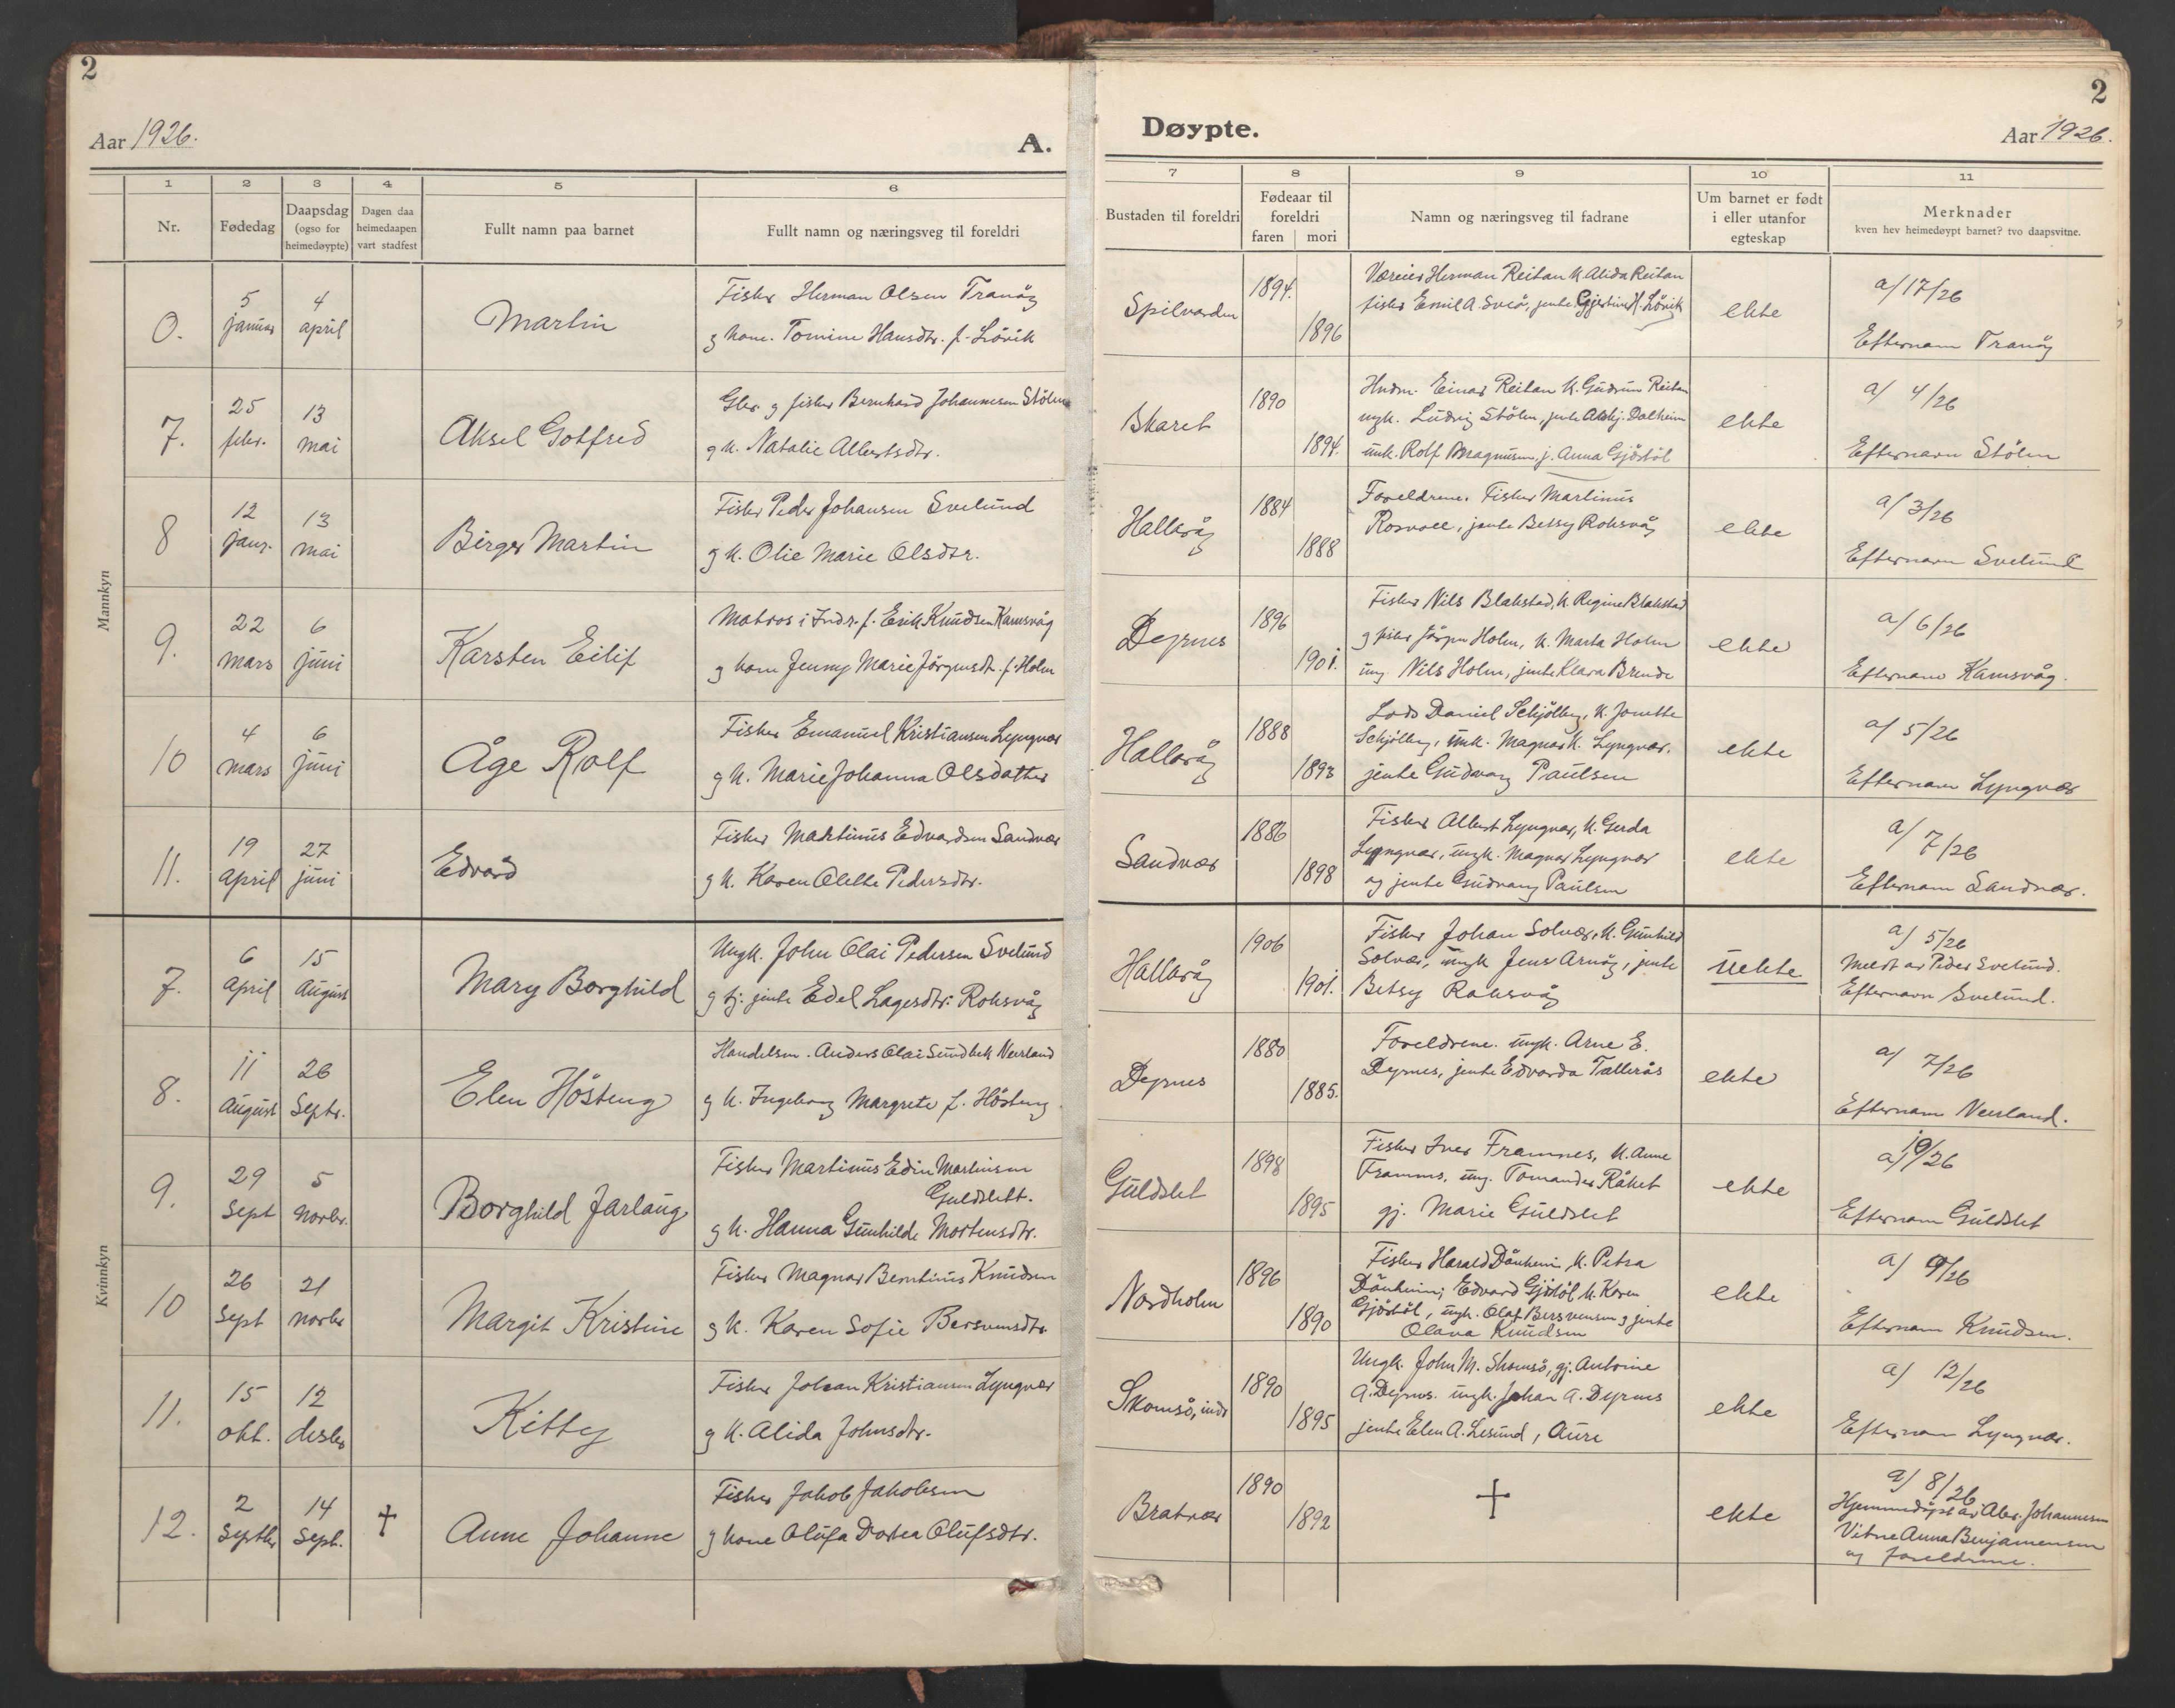 2
Aar 1926.
A.
1
2
3
4
5
6
Nr.
Fødedag
Daapsdag
(ogso for
heimedøypte)
Dagen daa
heimedaapen
vart stadfest
Fullt namn paa barnet
Fullt namn og næringsveg til foreldri
Mannkyn
0.
5
januar
4
april
Martin
Fisker Herman Olsen Tranöy
g kone. Tomine Hansdtr. f. Lövik
7.
25
febr.
13
mai
Aksel Gotfred
Gbr. g fisker Bernhard Johannesen Stölen
g k. Natalie Albertsdtr.
8
12
janr.
13
mai
Birger Martin
Fisker Peder Johansen Svelund
g k. Olie Marie Olsdtr.
9.
22
mars
6
juni
Karsten Eilif
Matros i Indr. f. Erik Knudsen Kamsvåg
g kone Jenny Marie Jörgensdt. f. Holm
10
4
mars
6
juni
Åge Rolf
Fisker Emanuel Kristiansen Lyngvær
g k. Marie Johanna Olsdatter
11.
19
april
27
juni
Edvard
Fisker Martinus Edvardsen Sandvær
g k. Karen Olette Pedersdtr.
Kvinnkyn
7.
6
April
15
August
Mary Borghild
Ungk. John Olai Pedersen Svelund
g tj. jente Edel Lagesdtr. Roksvåg
8.
11
August
26
Septr.
Elen Hösteng
Handelsm. Anders Olai Sundbek Neerland
g k. Ingeborg Margrete f. Hösteng
9.
29
Sept
5
Norbr.
Borghild Jarlaug
Fisker Martinus Edin Martinsen
Guldslett.
g k. Hanna Gunhilde Mortensdtr.
10
26
Sept
21
norbr
Margit Kristine
Fisker Magnar Berntinus Knudsen
g k. Karen Sofie Bersvensdtr.
11.
15
okt.
12
desbr
Kitty
Fisker Johan Kristiansen Lyngvær
g k. Alida Johnsdtr.
12.
2
Septbr
14
Sept.
†
Anne Johanne
Fisker Jakob Jakobsen
g kone Olufa Dortea Olufsdtr.
2
Døypte.
Aar 1926.
7
8
9
10
11
Bustaden til foreldri
Fødeaar til
foreldri
faren
mori
Namn og næringsveg til fadrane
Um barnet er født
i eller utanfor
egteskap
Merknader
kven hev heimedøypt barnet? tvo daapsvitne.
Spilvarden
1894.
1896
Væreier Herman Reitan k. Alida Reitan
fisker Emil A. Sveö, jente Gjertine H. Lövik
ekte
a/17/26
Efternam Tranöy
Skaret
1890
1894.
Hndm. Einar Reitan k. Gudrun Reitan
ungk. Ludvig Stölen, jente Dalheim
unk. Rolf Magnusen, j. Anna Gjöstöl
ekte
a/ 4/26
Efternavn Stölen
Hallvåg
1884
1888
Foreldrene. Fisker Martinus
Rosvoll, jente Betsy Roksvåg
ekte
a/ 3/26
Efternavn Svelund
Dyrnes
1896
1901.
Fisker Nils Blakstad, k. Regine Blakstad
g fisker Jörgen Holm, k. Marta Holm
ung Nils Holm, jente Klara Brende
ekte
a/ 6/26
Efternavn Kamsvåg.
Hallvåg
1888
1893
Lods Daniel Schjölberg, k. Jonette
Schjölberg, unk. Magnar K. Lyngvær.
jente Gudvang Paulsen
ekte
a/ 5/26
Efternam Lyngvær
Sandvær
1886
1898
Fisker Albert Lyngvær, k. Gerda
Lyngvær, ungk. Magnar Lyngvær
og jente Gudvang Paulsen
ekte
a/ 7/26
Efternam Sandvær.
Hallvåg
1906
1901.
Fisker Johan Solvær, k. Gunhild
Solvær, ungk Jens Arnöy, jente
Betsy Roksvåg
uekte
a/ 5/26
Meldt av Peder Svelund.
Efternavn Svelund.
Dyrnes
1880
1885.
Foreldrene. ungk. Arne E.
Dyrnes, jente Edvarda Tællerås
ekte
a/ 7/26
Efternam Neerland.
Guldslet
1898
1895
Fisker Iver Framnes, k. Anne
Framnes, ung. Tomander Råket
gj. Marie Guldslet
ekte
a/ 10/26
Efternam Guldslet
Nordholm
1896
1890
Fisker Harald Dönheim, k. Petra
Dönheim, Edvard Gjöstöl k. Karen
Gjöstöl, ungk. Olaf Bersvensen g jente
Olava Knudsen
ekte
a/ 9/26
Efternam Knudsen.
Skomsö, indr
1890
1895
Ungk. John M. Skomsö, gj. Antonie
A. Dyrnes. ungk. Johan A. Dyrnes
jente Elen A. Lesund, Aure
ekte
a/ 12/26
Efternam Lyngvær.
Bratvær
1890
1892
†
ekte
a/ 8/26
Hjemmedöpt av Abr. Johannesen
Vitne Anna Benjaminsen
og foreldrene.